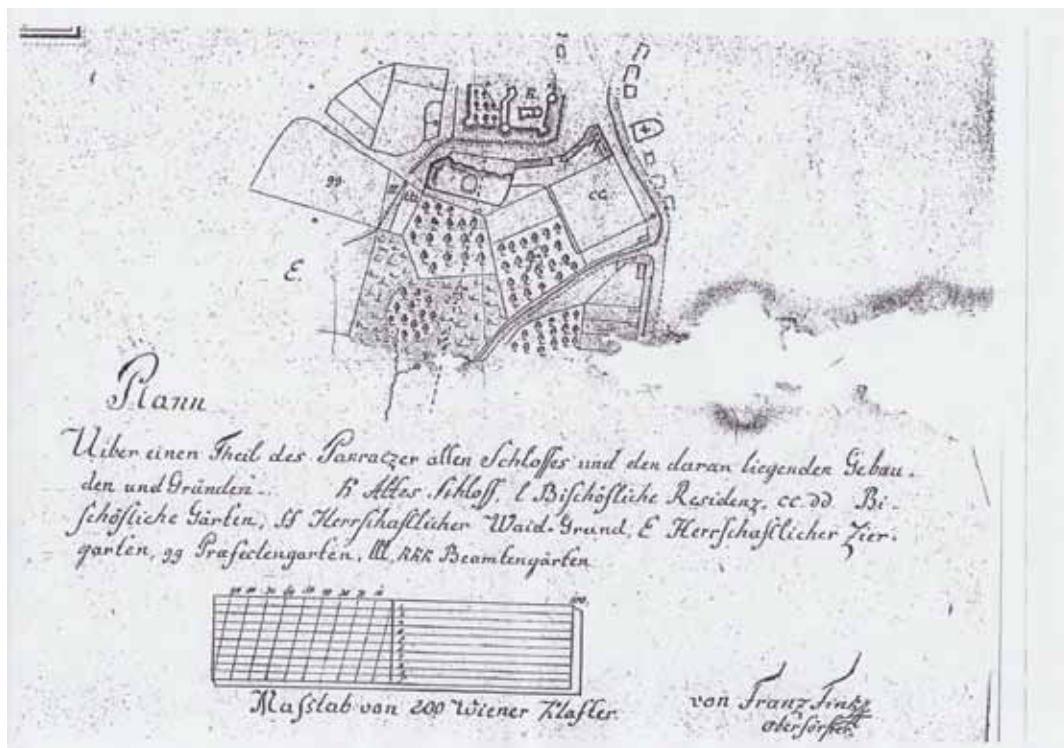 K
gg
E
cc
Plann
Uiber einen Theil des Pakraczer alten Schlosses und den daran liegenden Gebau-
den und Gründen. K Altes Schloss, l Bischöfliche Residenz, cc. dd Bi-
schöfliche Gärten, ff Herrschaftlicher Waid-Grund, E Herrschaftlicher Zier-
garten, gg Præfectengarten, lll, kkk Beamtengärten
Masstab von 200 Wiener Klafter.
von Franz
Oberförster